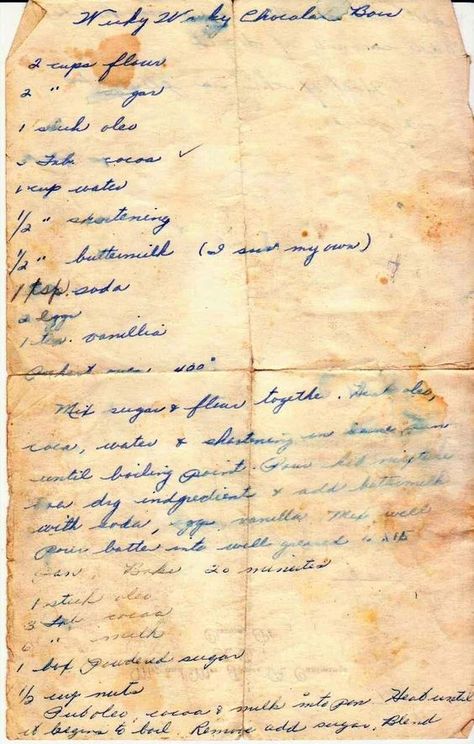 Wacky Wacky Chocolate Bars
2 cups flour
2 " sugar
1 stick oleo
3 Tab. cocoa ✓
1 cup water
1/2 " shortening
1/2 " buttermilk (I sour my own)
1 tsp. soda
2 eggs
1 tea. vanillia
Preheat oven 400°
Mix sugar & flour togethe. Heat oleo,
cocoa, water & shortening in
until boiling point. Pour hot mixture
dry indgredients & add buttermilk
with soda, eggs, vanilla. Mix well
Pour batter into well greased
pan. Bake 20 minutes
1 stick oleo
3 Tab cocoa
6 " milk
1 box Powdered sugar
1/2 cup nuts
Put oleo, cocoa & milk into pan. Heat until
it begins to boil. Remove add sugar. Blend